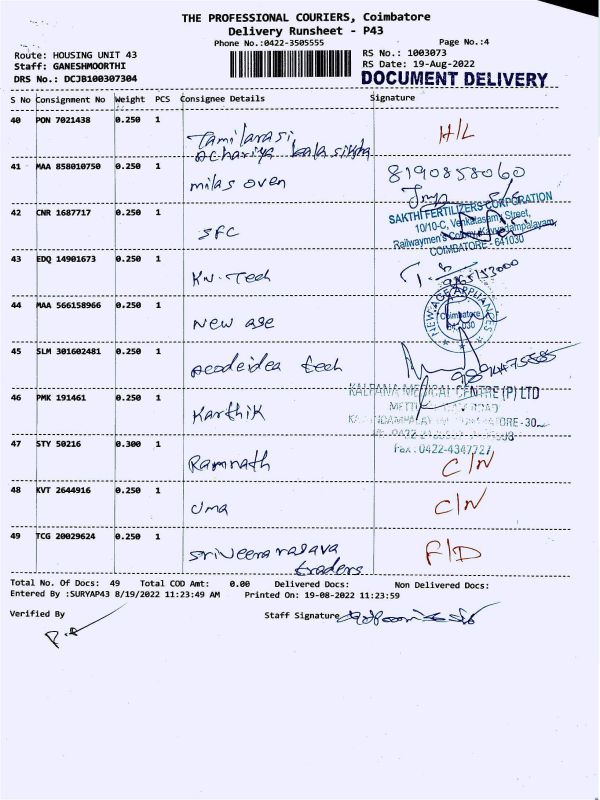 THE PROFESSIONAL COURIERS, Coimbatore
Delivery Runsheet - P43
Phone No.:0422-3505555
Page No.:4
Route: HOUSING UNIT 43
RS No.: 1003073
Staff: GANESHMOORTHI
RS Date: 19-Aug-2022
DRS No.: DCJB100307304
DOCUMENT DELIVERY
S No Consignment No Weight PCS Consignee Details Signature
40 PON 7021438 0.250 1
Tamilarasi H/L
Achariya bala siksha
41 MAA 858010750 0.250 1
milas oven 8190858060
42 CNR 1687717 0.250 1
SAKTHI FERTILIZERS CORPORATION
10/10-C, Venkatasamy Street,
SFC Railwaymen's Colony, Kavundampalayam,
COIMBATORE - 641030
43 EDQ 14901673 0.250 1
KN-Tech
44 MAA 566158966 0.250 1
NEW AGE APPLIANCES
Coimbatore
641 030
New age
45 SLM 301602481 0.250 1
Acodeidea tech
46 PMK 191461 0.250 1
KALPANA MEDICAL CENTRE (P) LTD
Karthik
Fax : 0422-4347727
47 STY 50216 0.300 1
Ramnath C/N
48 KVT 2644916 0.250 1
Uma C/N
49 TCG 20029624 0.250 1
sriveera ragava F/D
traders
Total No. Of Docs: 49 Total COD Amt: 0.00 Delivered Docs: Non Delivered Docs:
Entered By :SURYAP43 8/19/2022 11:23:49 AM Printed On: 19-08-2022 11:23:59
Verified By Staff Signature